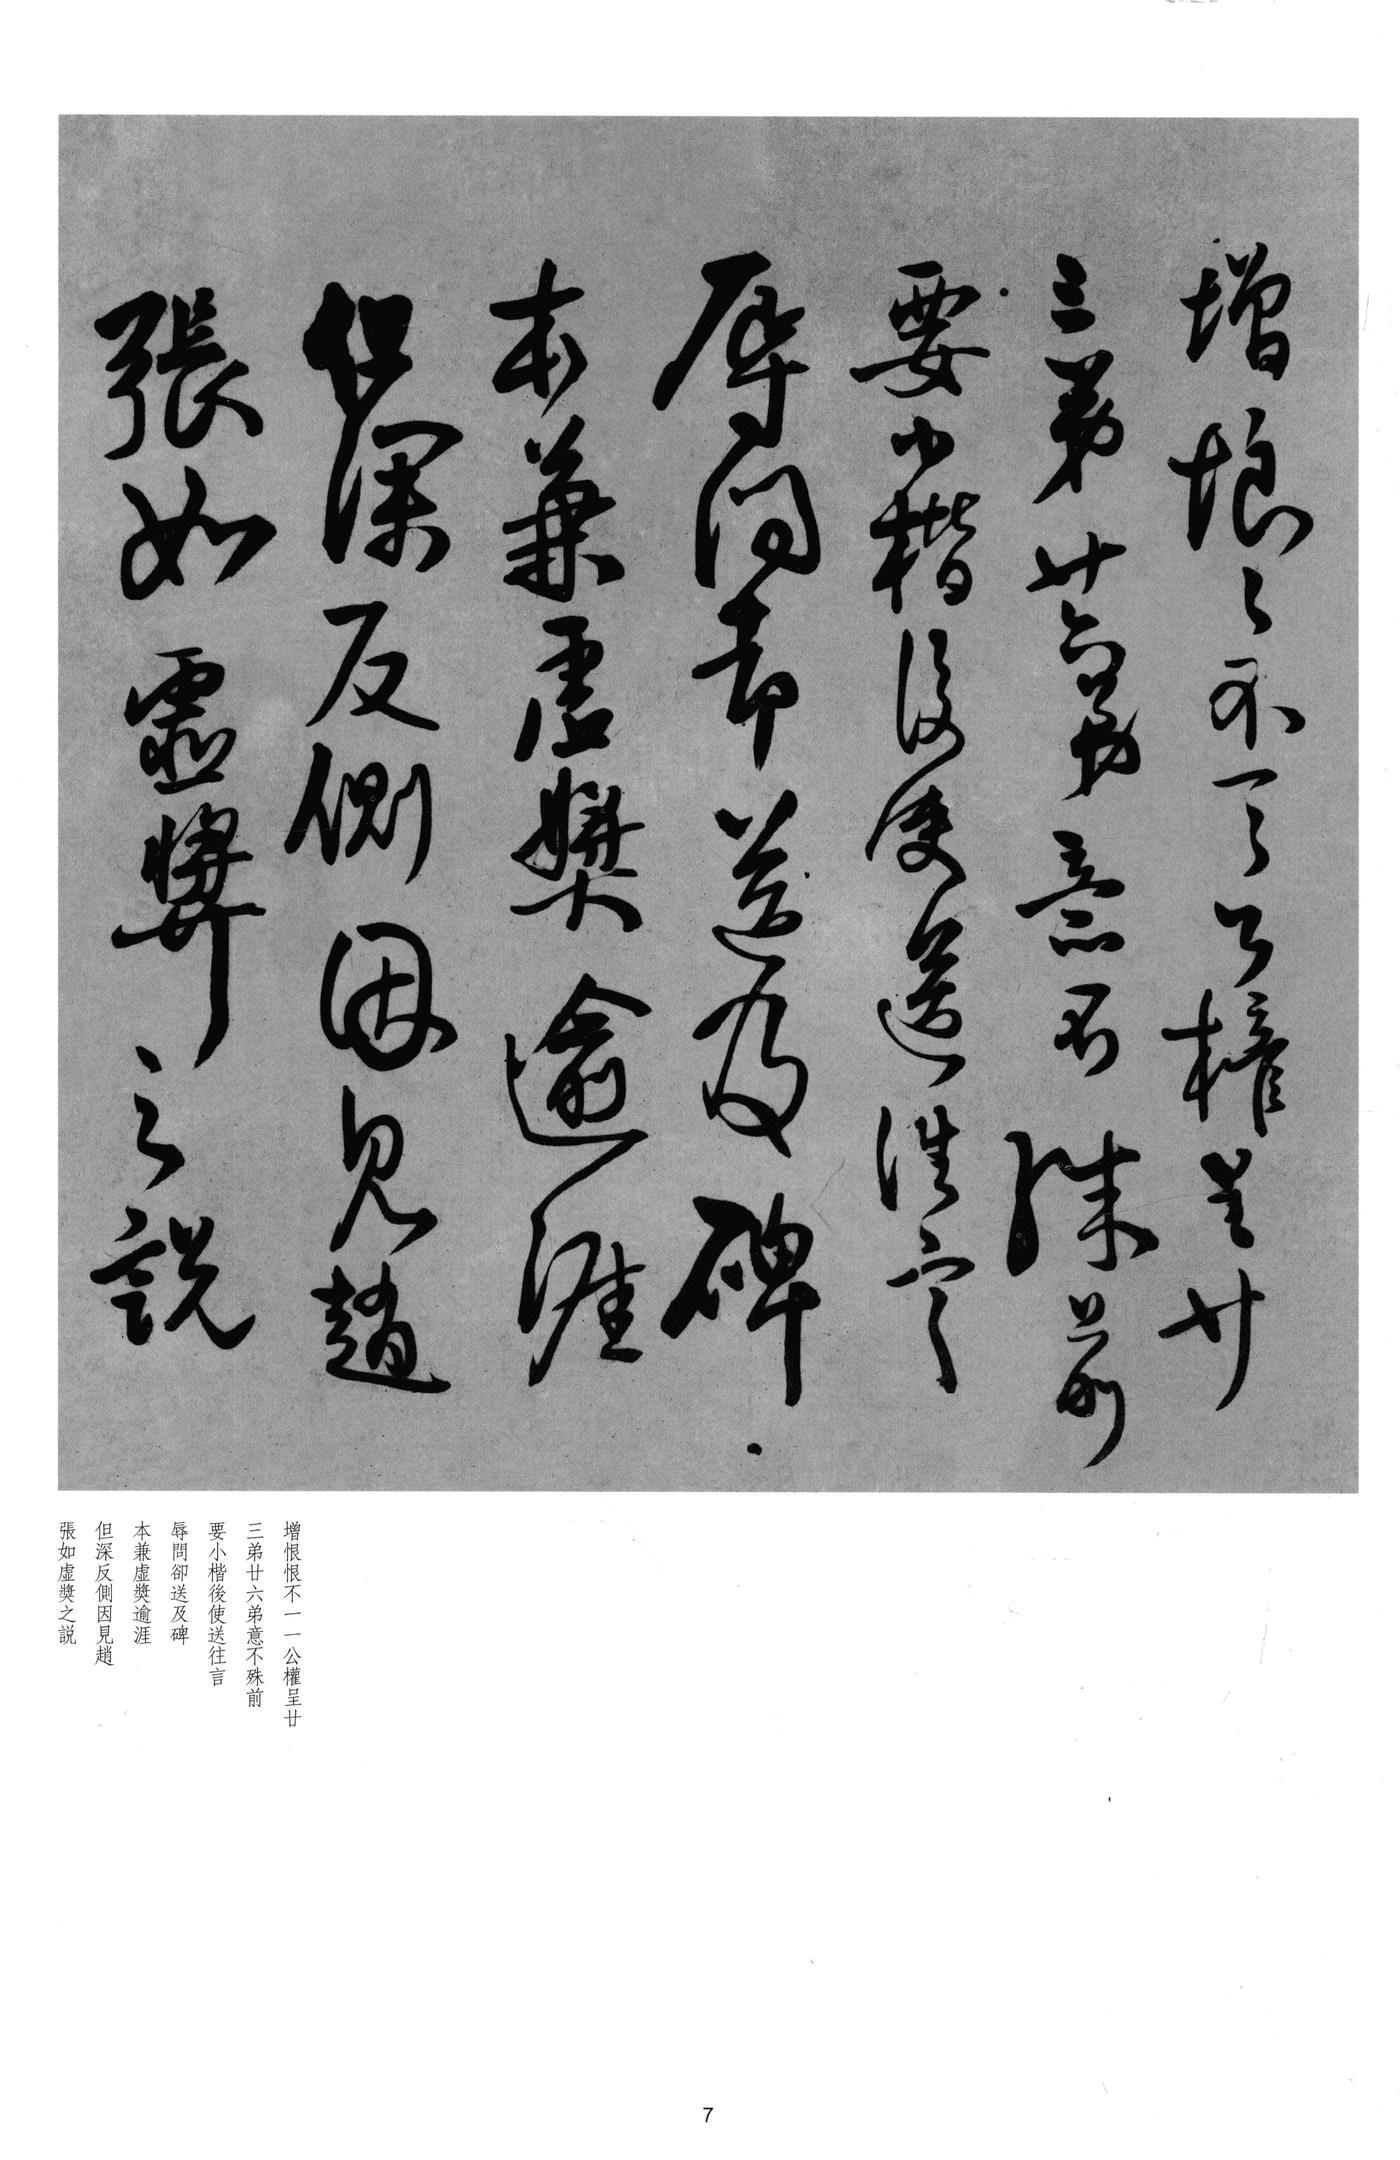 增恨恨不一一公權呈廿
三弟廿六弟意不殊前
要小楷後使送往言
辱問卻送及碑
本兼虛獎逾涯
但深反側因見趙
張如虛獎之説
增恨恨不一一公權呈廿
三弟廿六弟意不殊前
要小楷後使送往言
辱問卻送及碑
本兼虛獎逾涯
但深反側因見趙
張如虛獎之説
7